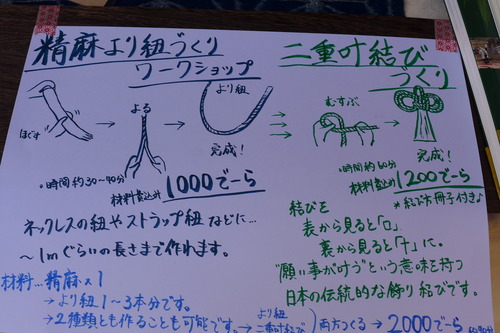 精麻より紐づくり
ワークショップ
ほぐす
よる
より紐
完成！
•時間約30〜40分
材料費込み 1000でーら
ネックレスの紐やストラップ紐などに…
〜1mぐらいの長さまで作れます。
材料…精麻×1
→より紐1〜3本分です。
→2種類とも作ることも可能です。
二重叶結び
づくり
むすぶ
完成！
•時間約60分
材料費込み 1200でーら
*結び方冊子付き♪
結びを
表から見ると「口」
裏から見ると「十」に。
"願い事が叶う"という意味を持つ
日本の伝統的な飾り結びです。
→より紐
二重叶結び
両方つくる→2000でーら